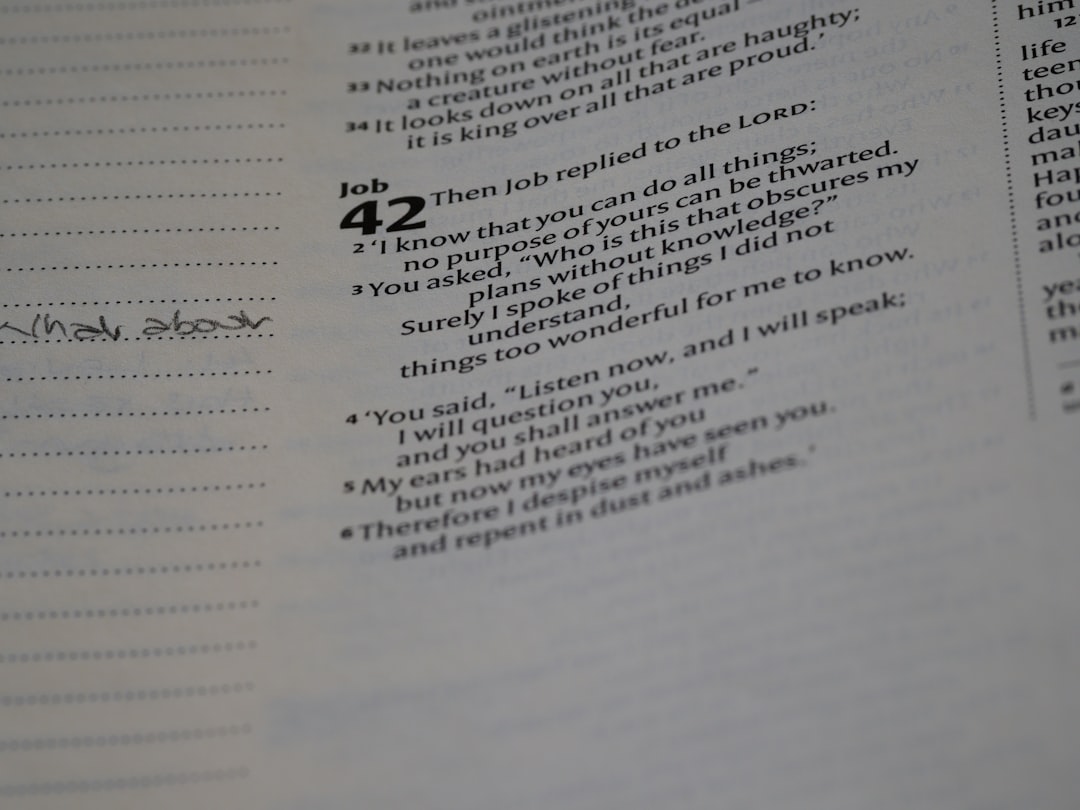 What about
and
ointment
32 It leaves a glistening
one would think the
33 Nothing on earth is its equal –
a creature without fear.
34 It looks down on all that are haughty;
it is king over all that are proud.’
Job
42 Then Job replied to the LORD:
2 ‘I know that you can do all things;
no purpose of yours can be thwarted.
3 You asked, “Who is this that obscures my
plans without knowledge?”
Surely I spoke of things I did not
understand,
things too wonderful for me to know.
4 ‘You said, “Listen now, and I will speak;
I will question you,
and you shall answer me.”
5 My ears had heard of you
but now my eyes have seen you.
6 Therefore I despise myself
and repent in dust and ashes.’
him
12
life
teen
thou
keys
dau
mal
Hap
fou
and
alo
yea
the
m